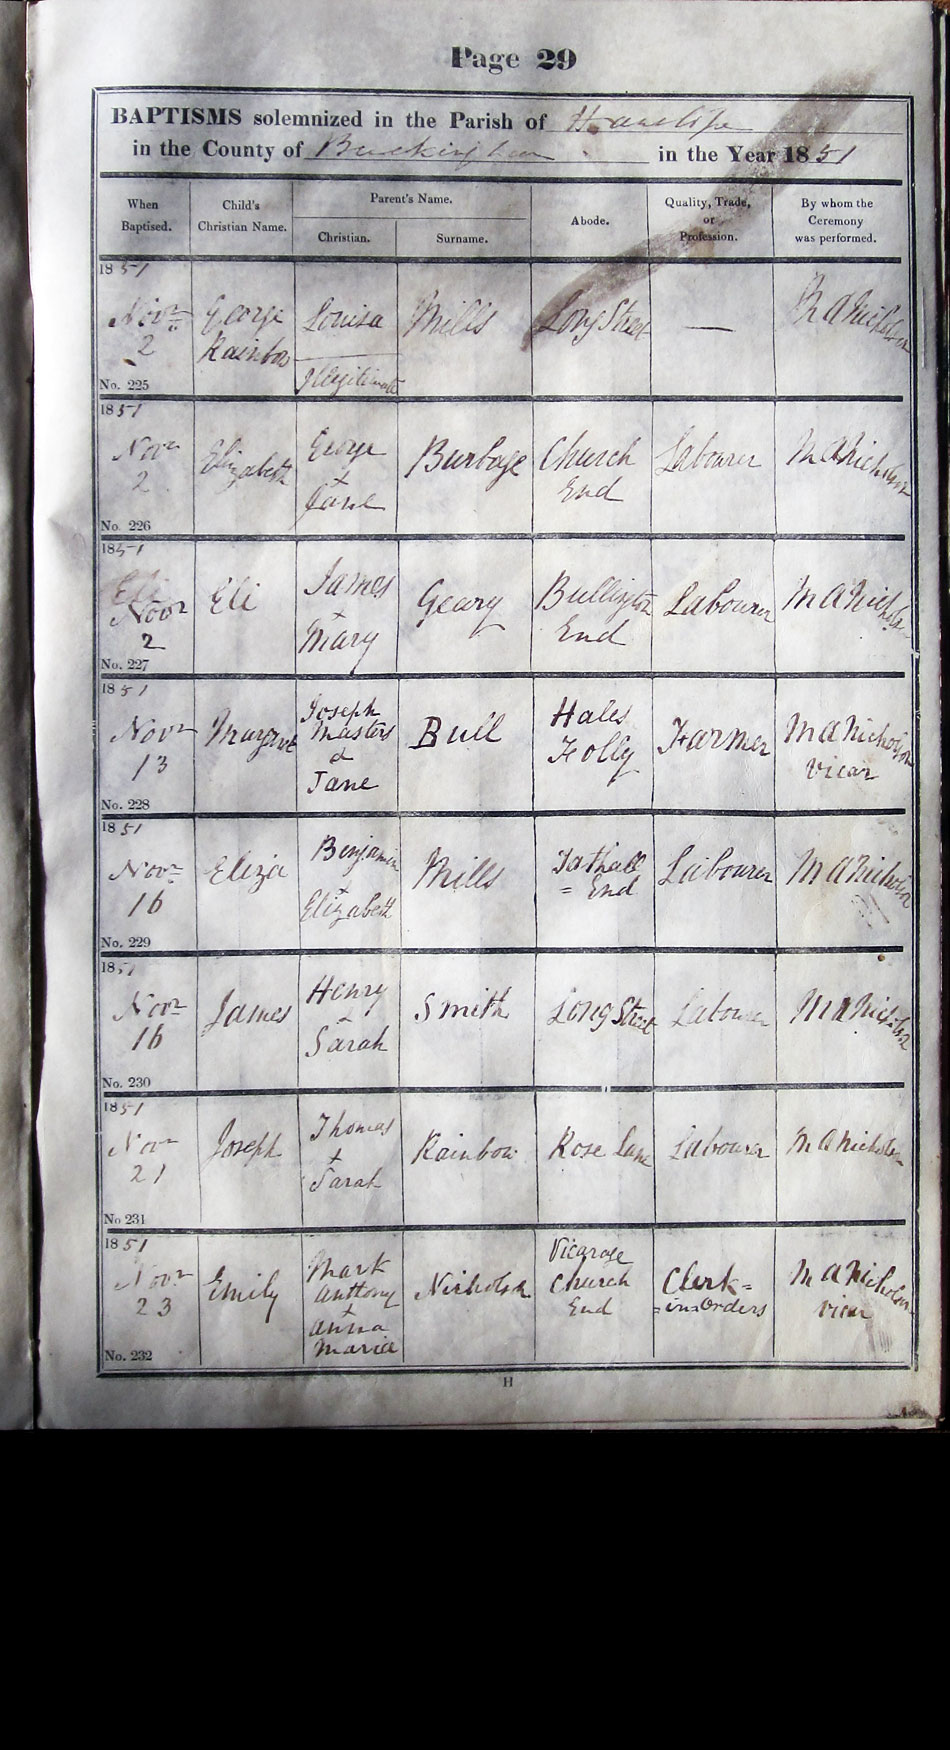 Page 29
BAPTISMS solemnized in the Parish of Hanslope
in the County of Buckingham in the Year 1851
When Baptised. Child's Christian Name. Parent's Name. Christian. Surname. Abode. Quality, Trade, or Profession. By whom the Ceremony was performed.
1851
Novr 2 George Rainbow Louisa Mills Long Street — M A Nicholson
Illegitimate
No. 225
1851
Novr 2 Elizabeth George + Jane Burbage Church End Labourer M A Nicholson
No. 226
1851
Novr 2 Eli James + Mary Geary Bullington End Labourer M A Nicholson
No. 227
1851
Novr 13 Margaret Joseph Masters & Jane Bull Hales Folly Farmer M A Nicholson Vicar
No. 228
1851
Novr 16 Eliza Benjamin + Elizabeth Mills Tathall = End Labourer M A Nicholson
No. 229
1851
Novr 16 James Henry + Sarah Smith Long Street Labourer M A Nicholson
No. 230
1851
Novr 21 Joseph Thomas + Sarah Rainbow Rose Lane Labourer M A Nicholson
No 231
1851
Novr 23 Emily Mark Anthony + Anna Maria Nicholson Vicarage Church End Clerk = in = Orders M A Nicholson Vicar
No. 232
H